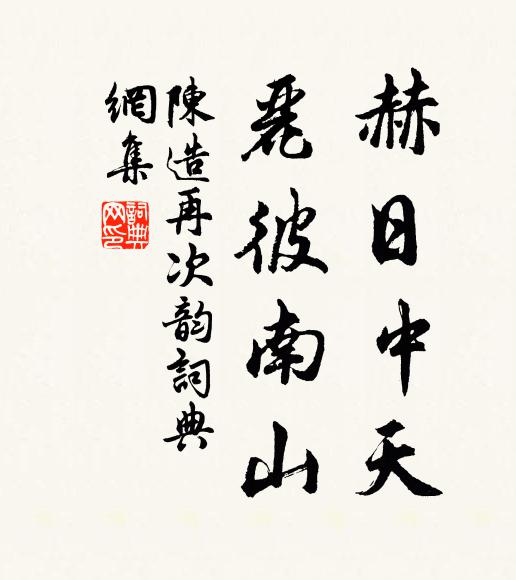 赫日中天
麗彼南山
陳造再次韵詞典
網集
詞典
网印